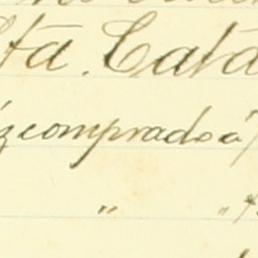 Sta. Cata
z comprado á
" "